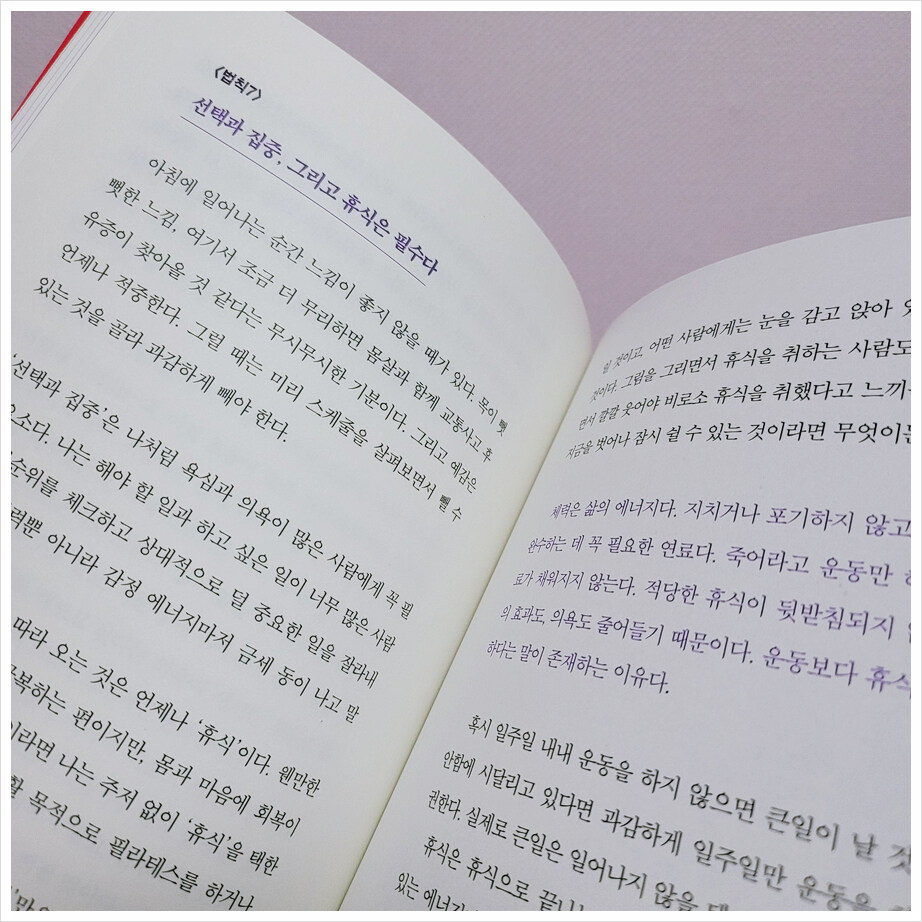 〈법칙7〉
선택과 집중, 그리고 휴식은 필수다
아침에 일어나는 순간 느낌이 좋지 않을 때가 있다. 목이 뻣
뻣한 느낌, 여기서 조금 더 무리하면 몸살과 함께 교통사고 후
유증이 찾아올 것 같다는 무시무시한 기분이다. 그리고 예감은
언제나 적중한다. 그럴 때는 미리 스케줄을 살펴보면서 뺄 수
있는 것을 골라 과감하게 빼야 한다.
'선택과 집중'은 나처럼 욕심과 의욕이 많은 사람에게 꼭 필
요소다. 나는 해야 할 일과 하고 싶은 일이 너무 많은 사람
순위를 체크하고 상대적으로 덜 중요한 일을 잘라내
력뿐 아니라 감정 에너지마저 금세 동이 나고 말
따라 오는 것은 언제나 '휴식'이다. 웬만한
복하는 편이지만, 몸과 마음에 회복이
이라면 나는 주저 없이 '휴식'을 택한
할 목적으로 필라테스를 하거나
일 것이고, 어떤 사람에게는 눈을 감고 앉아
것이다. 그림을 그리면서 휴식을 취하는 사람도
면서 깔깔 웃어야 비로소 휴식을 취했다고 느끼
지금을 벗어나 잠시 쉴 수 있는 것이라면 무엇이든
체력은 삶의 에너지다. 지치거나 포기하지 않고
완수하는 데 꼭 필요한 연료다. 죽어라고 운동만
료가 채워지지 않는다. 적당한 휴식이 뒷받침되지
의 효과도, 의욕도 줄어들기 때문이다. 운동보다 휴식
하다는 말이 존재하는 이유다.
혹시 일주일 내내 운동을 하지 않으면 큰일이 날 것
안함에 시달리고 있다면 과감하게 일주일만 운동을
권한다. 실제로 큰일은 일어나지 않을 
휴식은 휴식으로 끝나
있는 에너지